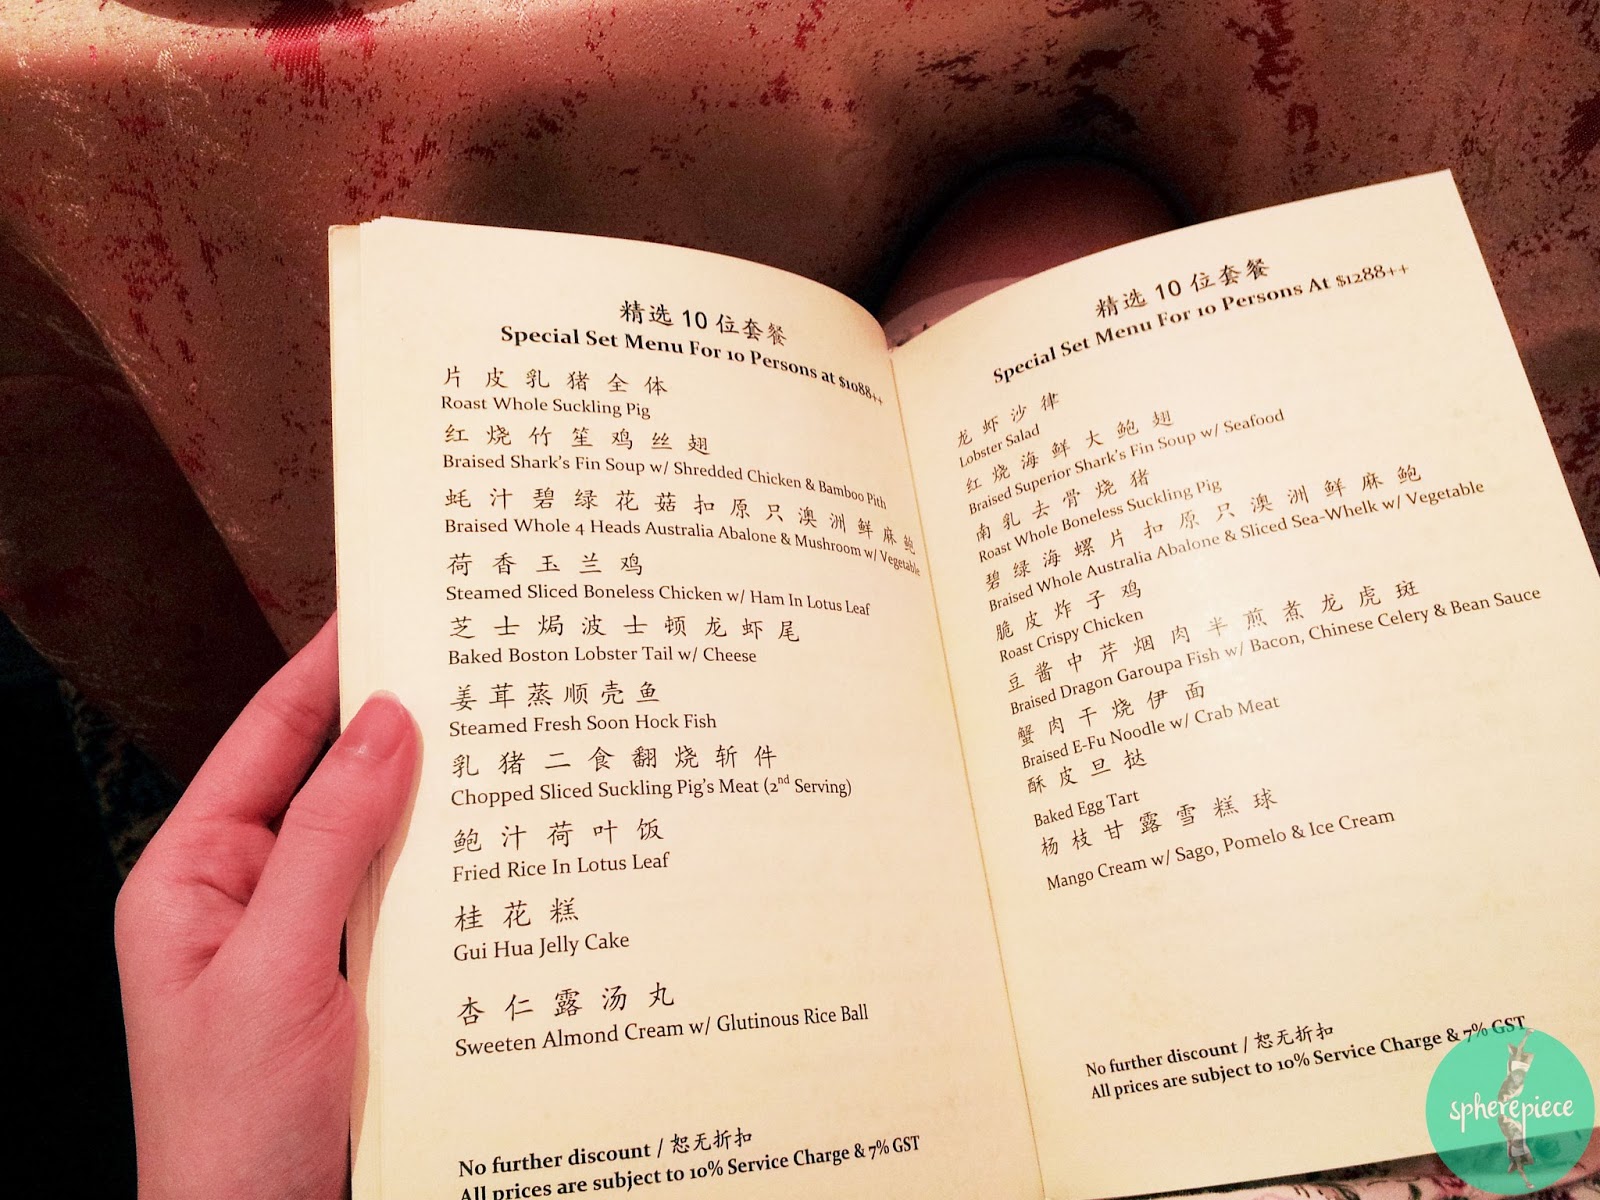 精选 10 位套餐
Special Set Menu For 10 Persons at $1088++
片皮乳猪全体
Roast Whole Suckling Pig
红烧竹笙鸡丝翅
Braised Shark's Fin Soup w/ Shredded Chicken & Bamboo Pith
蚝汁碧绿花菇扣原只澳洲鲜麻鲍
Braised Whole 4 Heads Australia Abalone & Mushroom w/ Vegetable
荷香玉兰鸡
Steamed Sliced Boneless Chicken w/ Ham In Lotus Leaf
芝士焗波士顿龙虾尾
Baked Boston Lobster Tail w/ Cheese
姜茸蒸顺壳鱼
Steamed Fresh Soon Hock Fish
乳猪二食翻烧斩件
Chopped Sliced Suckling Pig's Meat (2nd Serving)
鲍汁荷叶饭
Fried Rice In Lotus Leaf
桂花糕
Gui Hua Jelly Cake
杏仁露汤丸
Sweeten Almond Cream w/ Glutinous Rice Ball
No further discount / 恕无折扣
All prices are subject to 10% Service Charge & 7% GST
精选 10 位套餐
Special Set Menu For 10 Persons At $1288++
龙虾沙律
Lobster Salad
红烧海鲜大鲍翅
Braised Superior Shark's Fin Soup w/ Seafood
南乳去骨烧猪
Roast Whole Boneless Suckling Pig
碧绿海螺片扣原只澳洲鲜麻鲍
Braised Whole Australia Abalone & Sliced Sea-Whelk w/ Vegetable
脆皮炸子鸡
Roast Crispy Chicken
豆酱中芹烟肉半煎煮龙虎斑
Braised Dragon Garoupa Fish w/ Bacon, Chinese Celery & Bean Sauce
蟹肉干烧伊面
Braised E-Fu Noodle w/ Crab Meat
酥皮旦挞
Baked Egg Tart
杨枝甘露雪糕球
Mango Cream w/ Sago, Pomelo & Ice Cream
No further discount / 恕无折扣
All prices are subject to 10% Service Charge & 7% GST
spherepiece